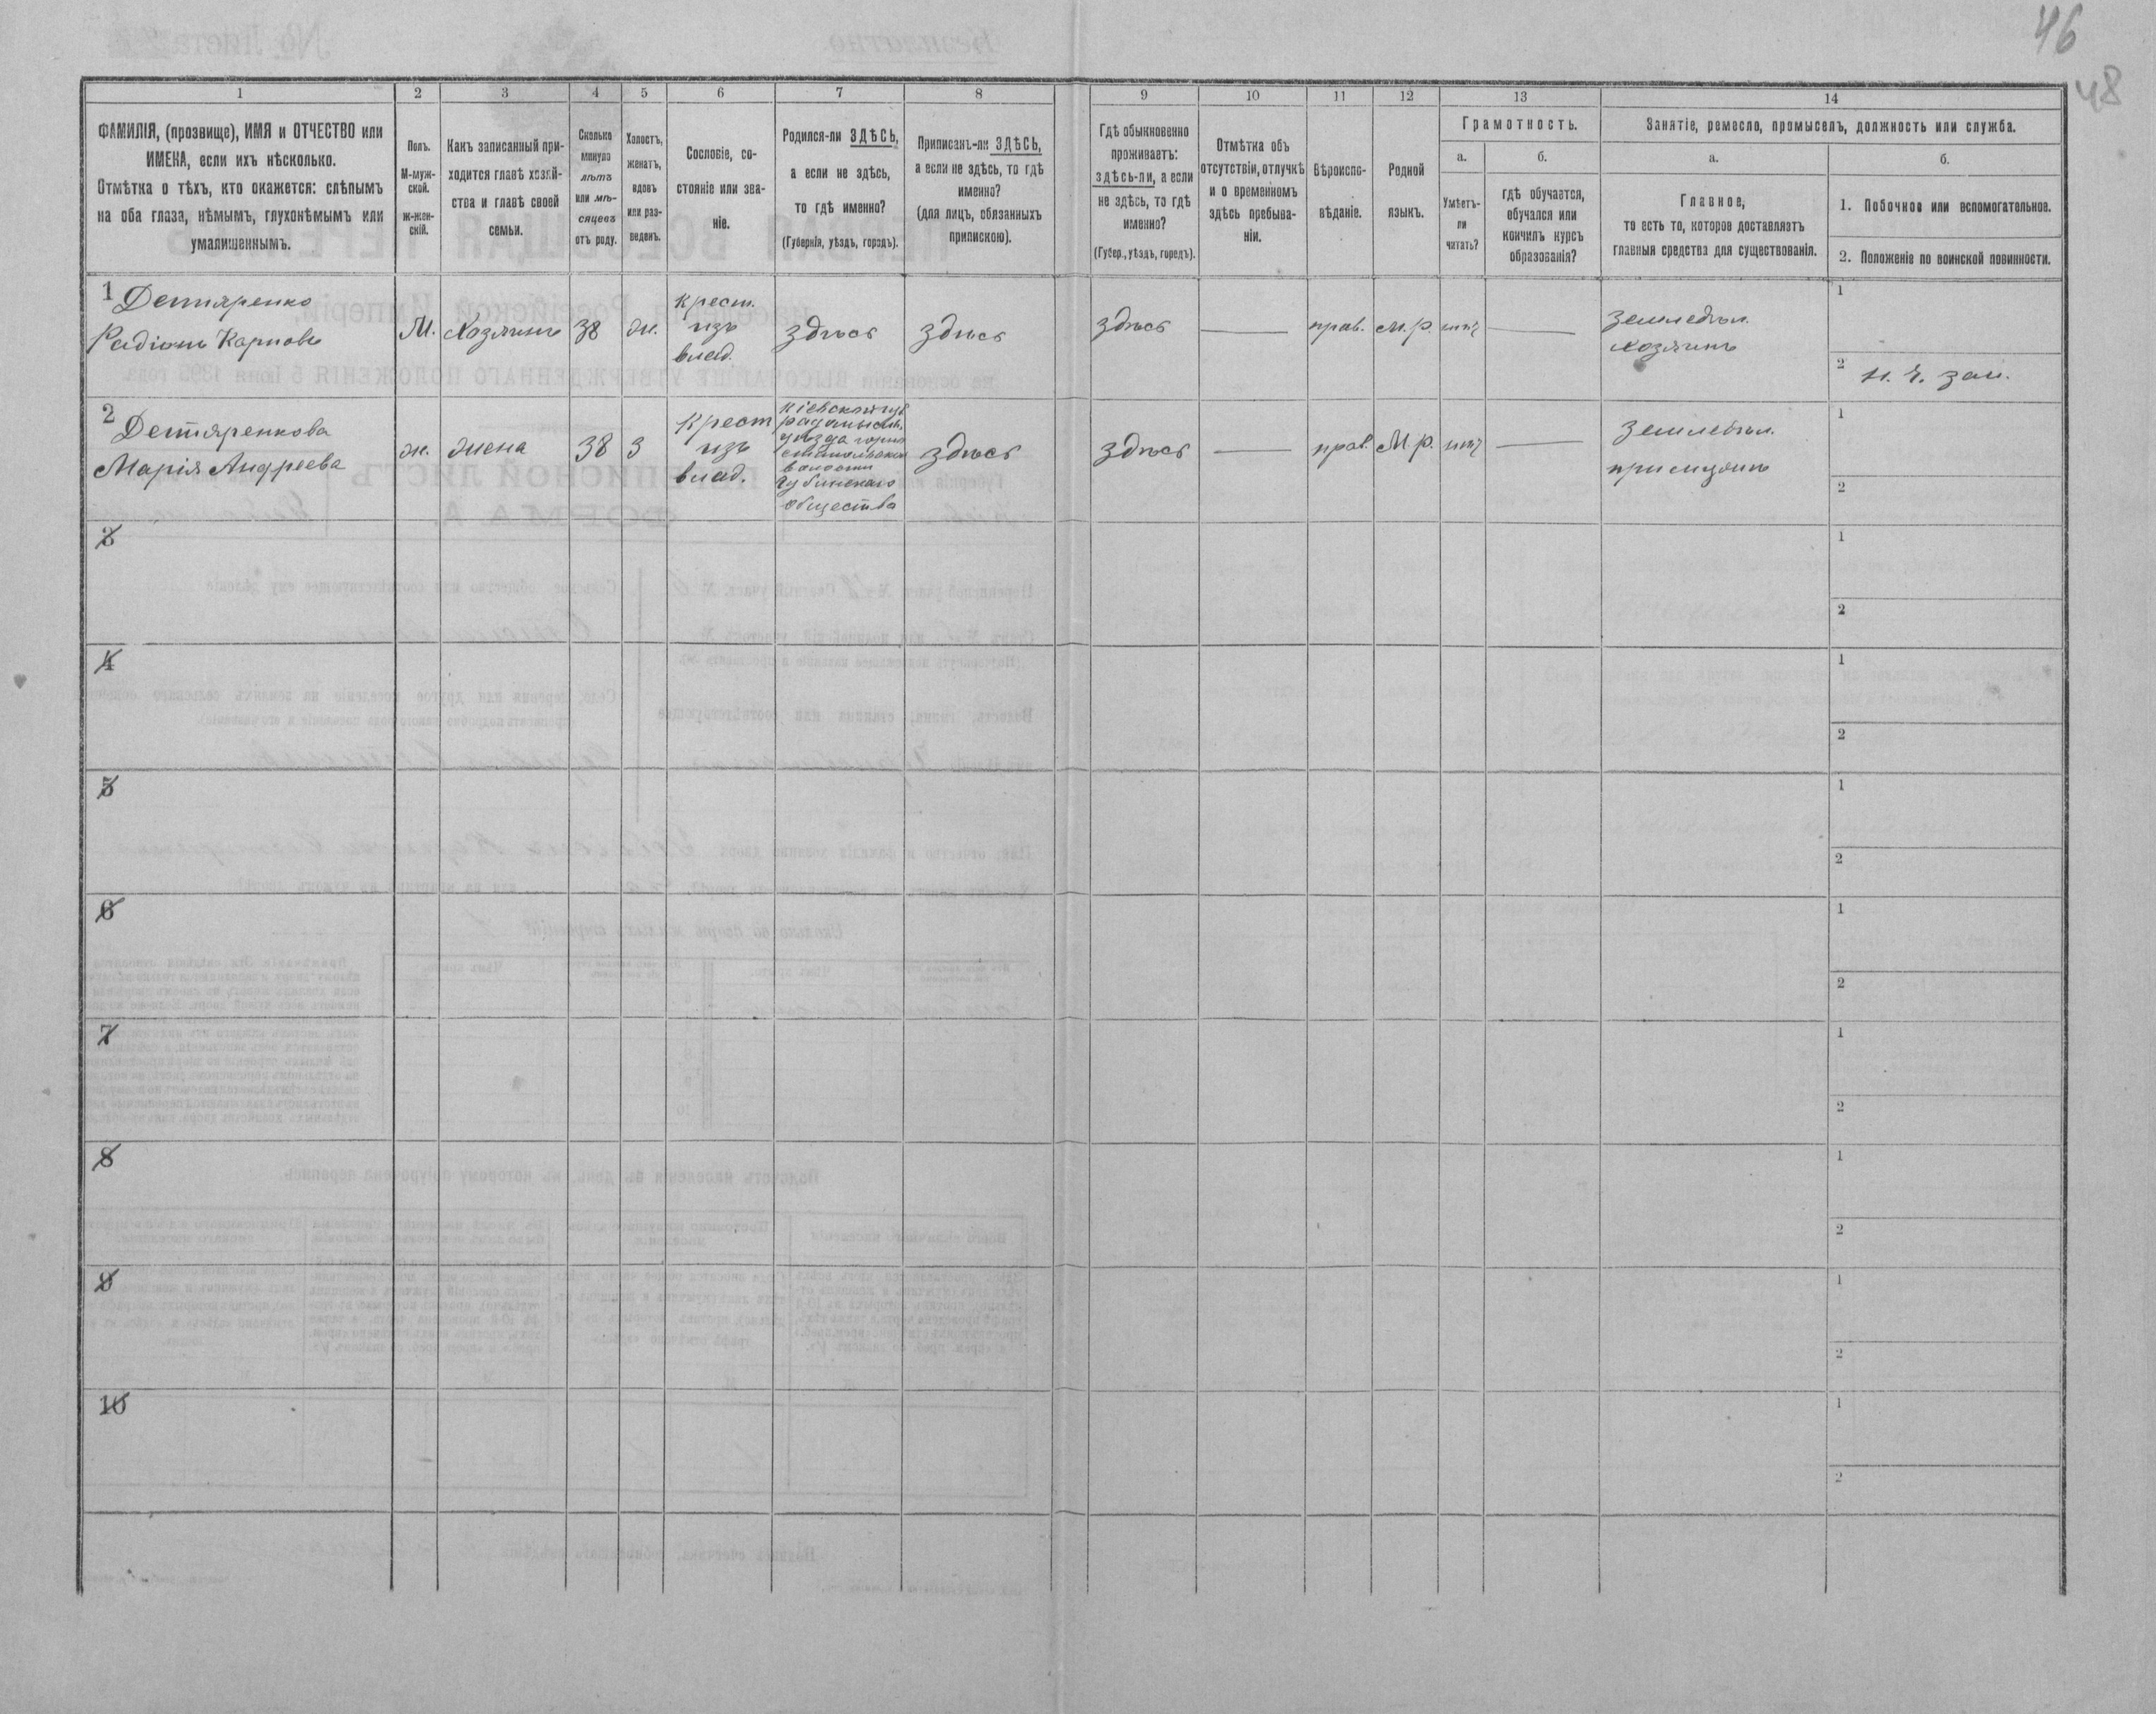 46
48
1
2
3
4
5
6
7
8
9
10
11
12
13
14
ФАМИЛІЯ, (прозвище), ИМЯ и ОТЧЕСТВО или
ИМЕНА, если ихъ нѣсколько.
Отмѣтка о тѣхъ, кто окажется: слѣпымъ
на оба глаза, нѣмымъ, глухонѣмымъ или
умалишеннымъ.
Полъ.
М-муж-
ской.
ж-жен-
скій.
Какъ записанный при-
ходится главѣ хозяй-
ства и главѣ своей
семьи.
Сколько
минуло
лѣтъ
или мѣ-
сяцевъ
отъ роду.
Холостъ,
женатъ,
вдовъ
или раз-
веденъ.
Сословіе, со-
стояніе или зва-
ніе.
Родился-ли ЗДѢСЬ,
а если не здѣсь,
то гдѣ именно?
(Губернія, уѣздъ, городъ).
Приписанъ-ли ЗДѢСЬ,
а если не здѣсь, то гдѣ
именно?
(для лицъ, обязанныхъ
припискою).
Гдѣ обыкновенно
проживаетъ:
здѣсь-ли, а если
не здѣсь, то гдѣ
именно?
(Губер., уѣздъ, городъ).
Отмѣтка объ
отсутствіи, отлучкѣ
и о временномъ
здѣсь пребыва-
ніи.
Вѣроиспо-
вѣданіе.
Родной
языкъ.
Грамотность.
а.
Умѣетъ-
ли
читать?
б.
гдѣ обучается,
обучался или
кончилъ курсъ
образованія?
Занятіе, ремесло, промыселъ, должность или служба.
а.
Главное,
то есть то, которое доставляетъ
главныя средства для существованія.
б.
1. Побочное или вспомогательное.
2. Положеніе по воинской повинности.
1 Дегтяренко
Радіонъ Карповъ
М.
Хозяинъ
38
ж.
Крест.
изъ
влад.
здѣсь
здѣсь
здѣсь
прав.
м.р.
нѣт
земледѣл.
хозяинъ
1
2 н. ч. зап.
2 Дегтяренкова
Марія Андреева
ж.
жена
38
З
Крест
изъ
влад.
Кіевской губ
радомысл.
уѣзда
волости
общества
здѣсь
здѣсь
прав.
М.р.
нѣт
земледѣл.
при мужѣ
1
2
3
1
2
4
1
2
5
1
2
6
1
2
7
1
2
8
1
2
9
1
2
10
1
2